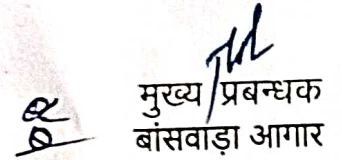 मुख्य प्रबन्धक
बांसवाड़ा आगार